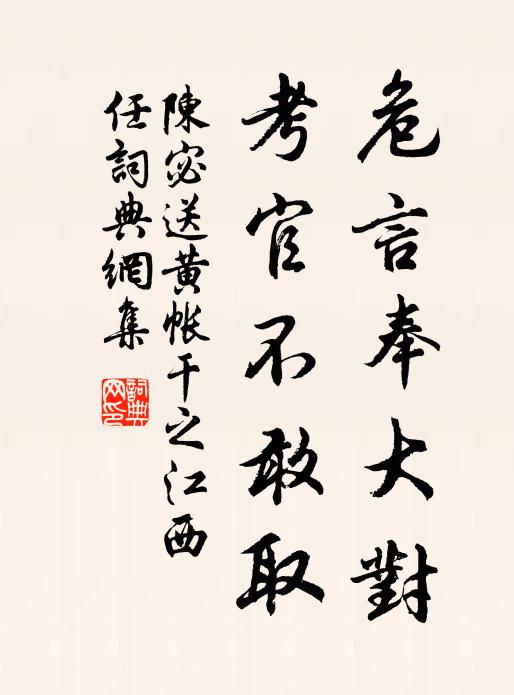 危言奉大對
考官不敢取
陳宓送黄帐干之江西
任詞典網集
詞典网印